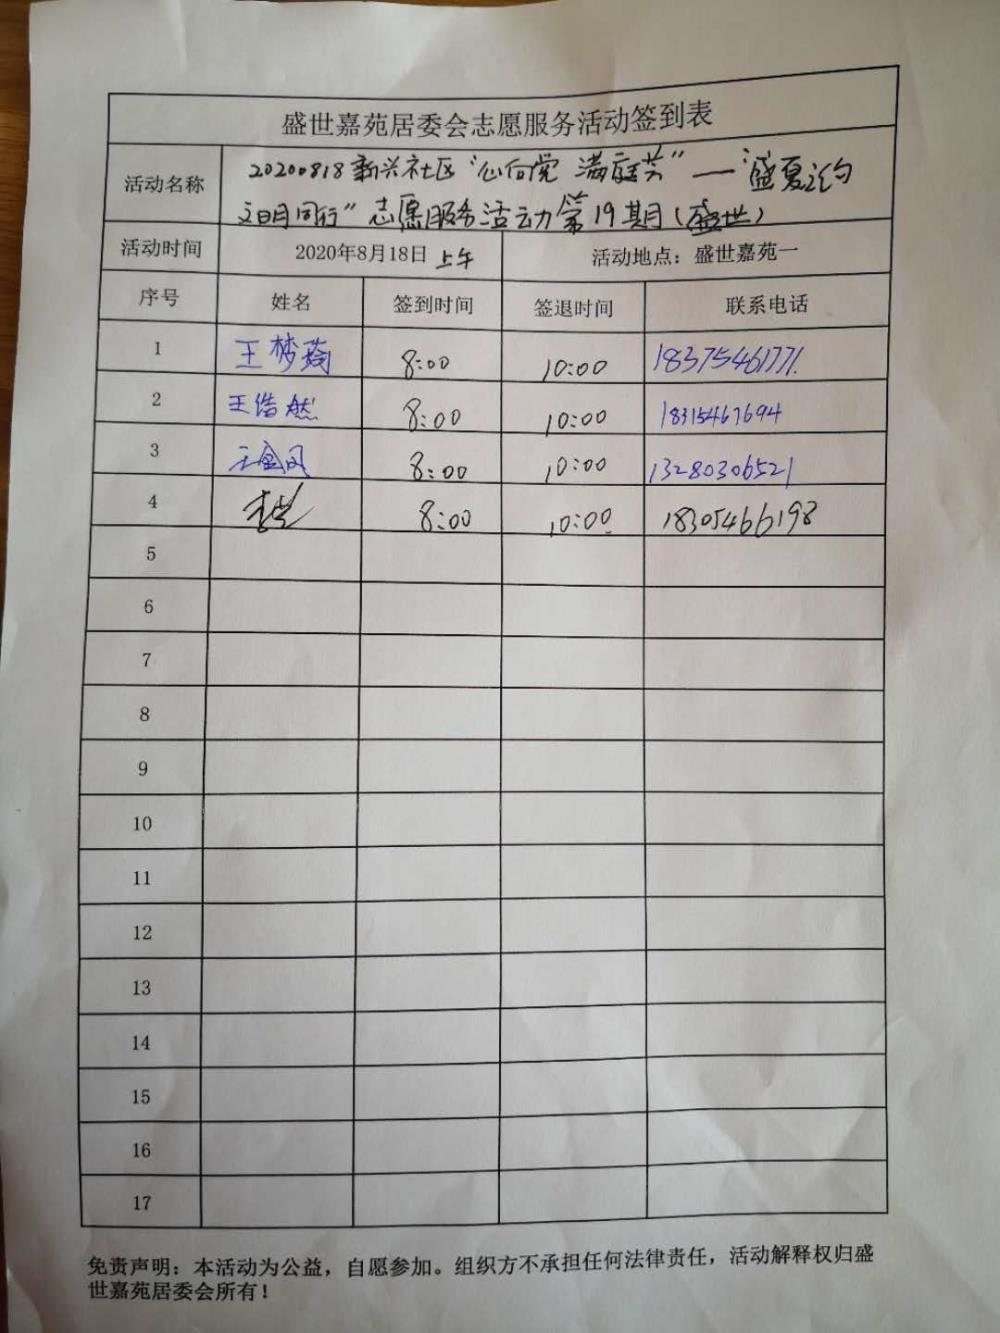 盛世嘉苑居委会志愿服务活动签到表
活动名称 20200818新兴社区“心向党 满庭芳”一“盛夏之约
文明同行”志愿服务活动第19期(盛世)
活动时间 2020年8月18日 上午 活动地点：盛世嘉苑一
序号 姓名 签到时间 签退时间 联系电话
1 王梦 8:00 10:00 18375461771
2 王浩然 8:00 10:00 18315467694
3 王金凤 8:00 10:00 13280306521
4 李 8:00 10:00 18305466198
5
6
7
8
9
10
11
12
13
14
15
16
17
免责声明：本活动为公益，自愿参加。组织方不承担任何法律责任，活动解释权归盛
世嘉苑居委会所有！